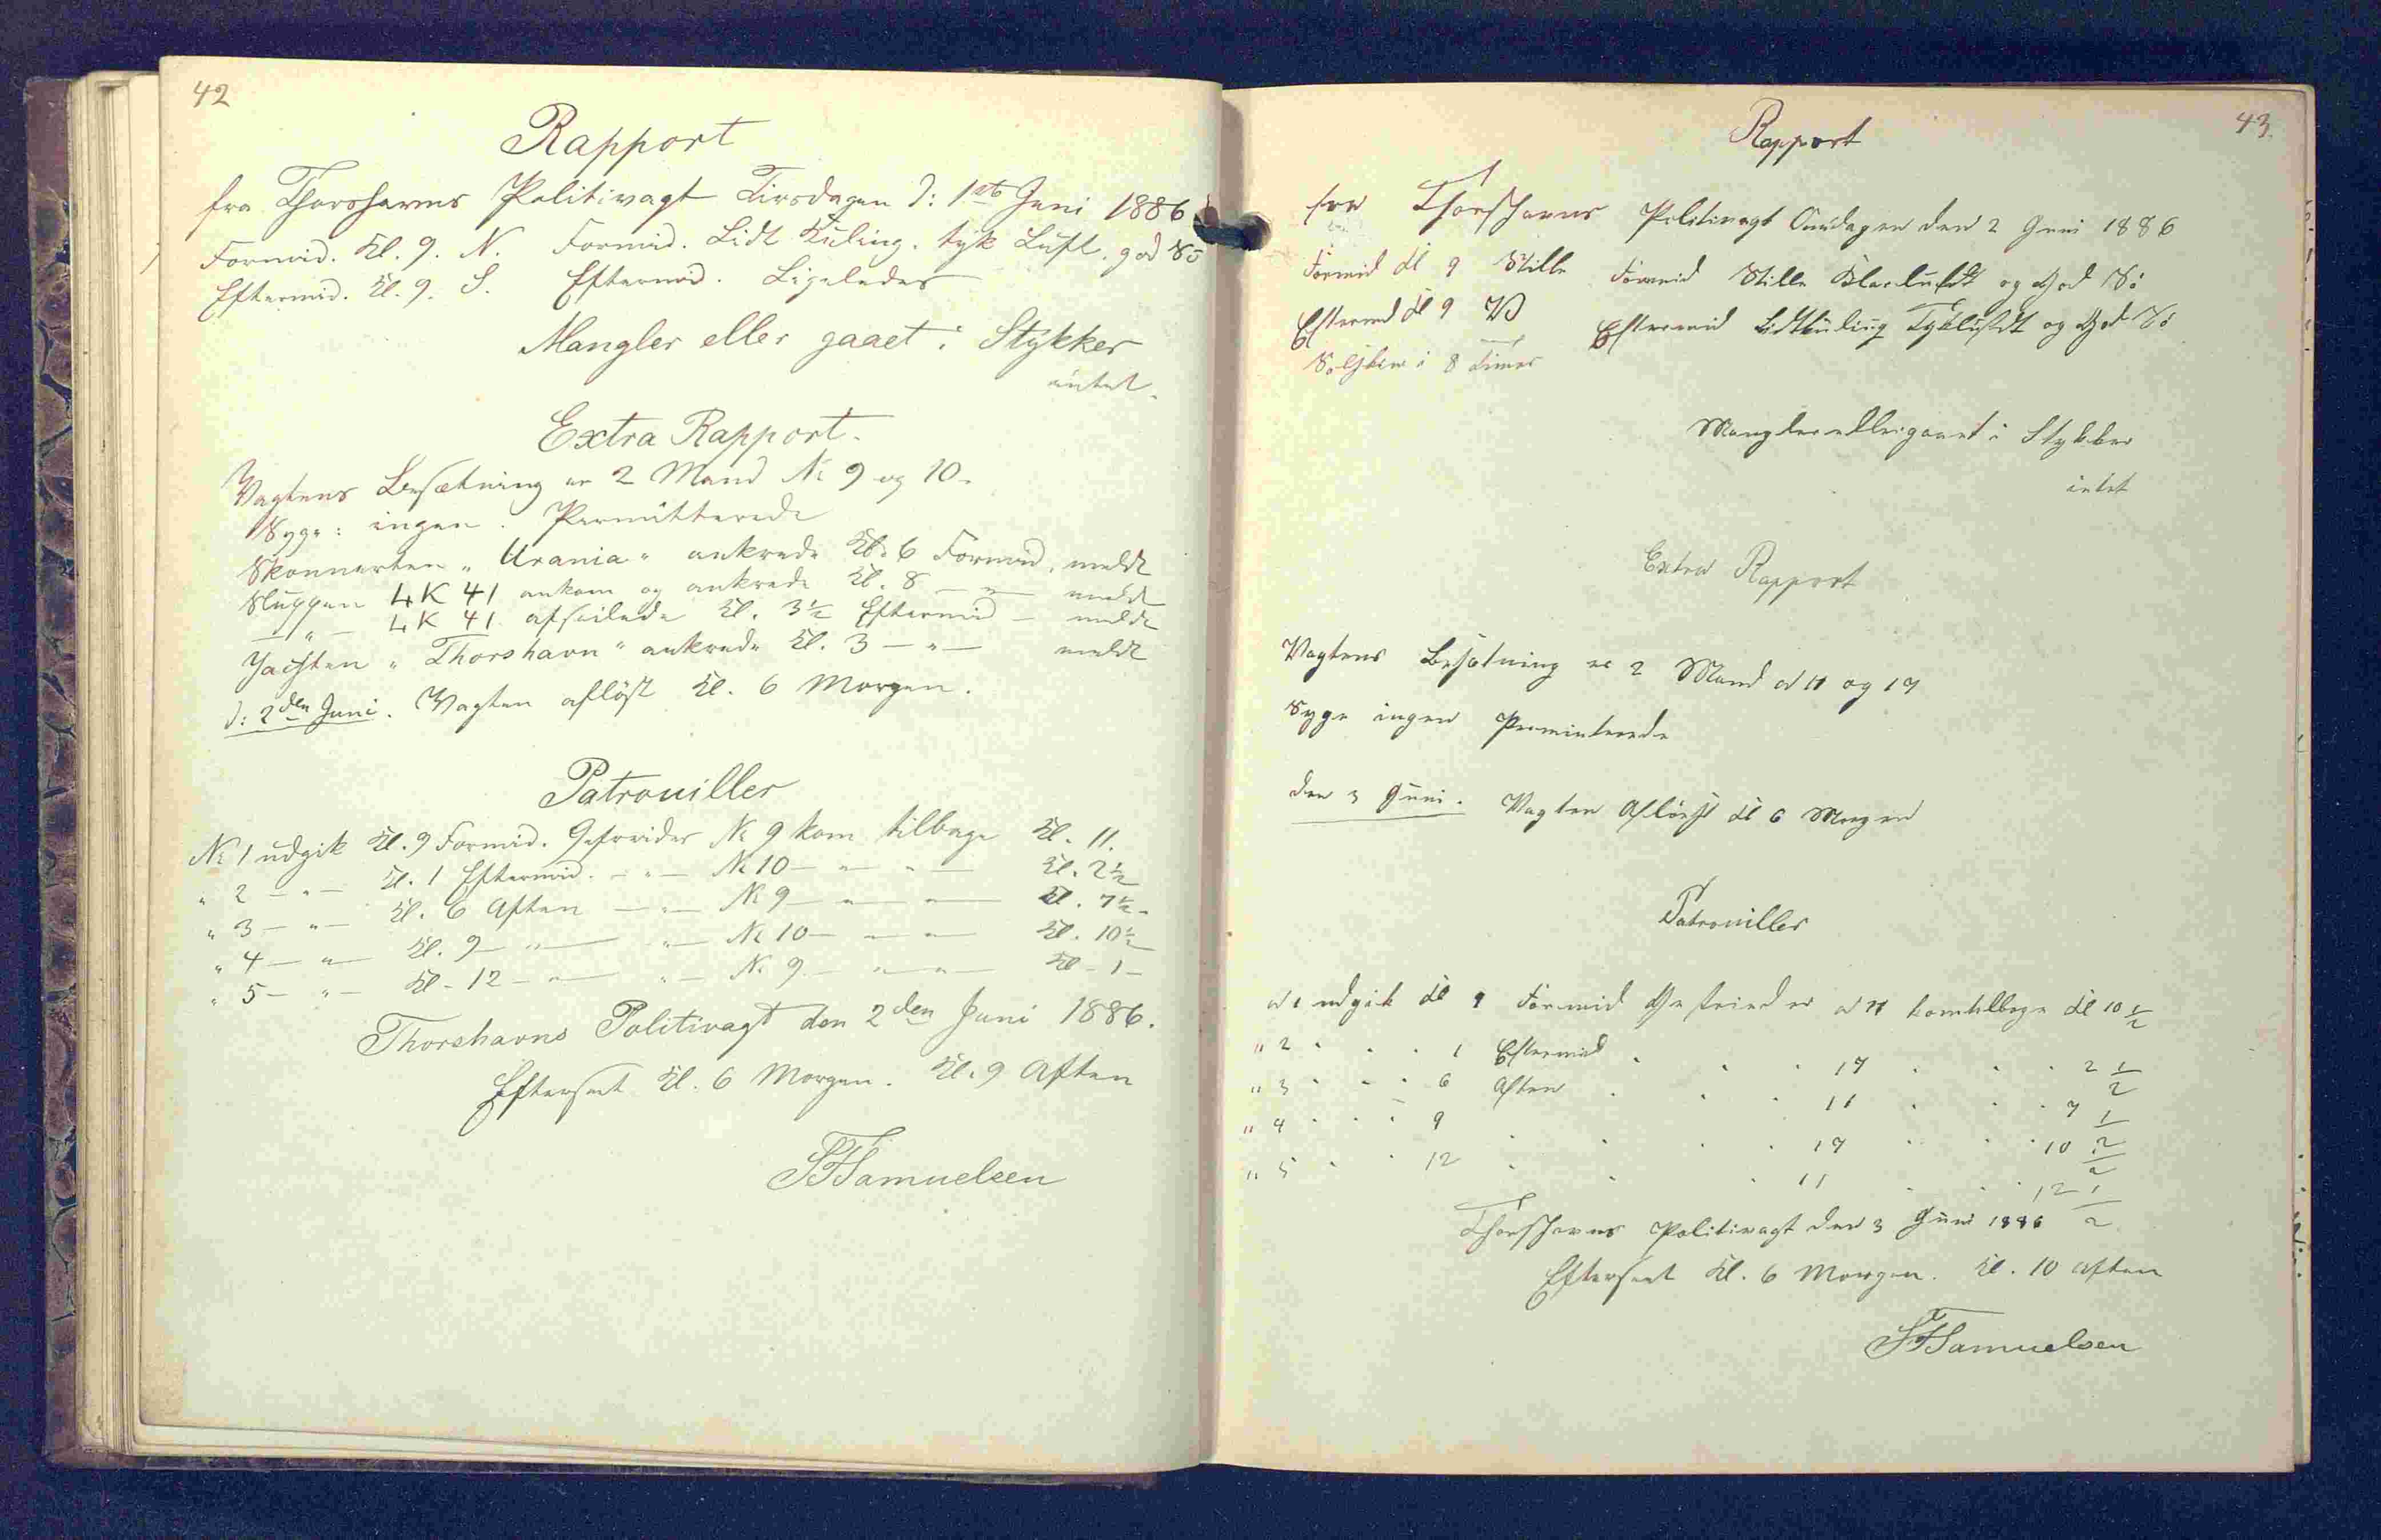 42
Rapport
fra Thorshavns Politivagt Tirsdagen d: 1ste Juni 1886
Formid. Kl. 9. N. Formid. Lidt Kuling. tyk Luft. god Sö
Eftermid. Kl. 9. S. Eftermid. Ligeledes
Mangler eller gaaet i Stykker
intet.
Extra Rapport.
Vagtens Besætning er 2 Mand No 9 og 10.
Syge: ingen. Permitterede
Skonnerten "Urania" ankrede Kl. 6 Formid. meldt
Sluppen LK 41 ankom og ankrede Kl. 8 — " — meldt
— " — LK 41 afseilede Kl. 3½ Eftermid — meldt
Jachten "Thorshavn" ankrede Kl. 3 — " — meldt
d: 2den Juni. Vagten aflöst Kl. 6 Morgen.
Patrouiller
No 1 udgik Kl. 9 Formid. Gefreider No 9 kom tilbage Kl. 11.
" 2 — " — Kl. 1 Eftermid. — " — No 10 — " — " — Kl. 2½
" 3 — " — Kl. 6 Aften — " — No 9 — " — " — Kl. 7½
" 4 — " — Kl. 9 — " — — " — No 10 — " — " — Kl. 10½
" 5 — " — Kl. 12 — " — — " — No 9 — " — " — Kl. 1 —
Thorshavns Politivagt den 2den Juni 1886.
Efterseet Kl. 6 Morgen. Kl. 9 Aften
SFSamuelsen
43.
Rapport
fra Thorshavns Politivagt Onsdagen den 2 Juni 1886
Formid Kl 9 Stille Formid Stille Klarluft og God Sö
Eftermd Kl 9 V Eftermid Lidtkuling Tykluft og God Sö
Solskin i 8 Timer
Mangler eller gaaet i Stykker
intet
Extra Rapport
Vagtens Besætning er 2 Mand No 11 og 17
Syge ingen Permitterede
den 3 Juni. Vagten Aflöst Kl 6 Morgen
Patrouiller
No 1 udgik Kl 9 Formid Gefreider No 11 kom tilbage Kl 10 ½
" 2 " " " 1 Eftermid " " " 17 " " " 2 ½
" 3 " " " 6 Aften " " " 11 " " " 7 ½
" 4 " " " 9 " " " " 17 " " " 10 ½
" 5 " " 12 " " " 11 " " " 12 ½
Thorshavns Politivagt den 3 Juni 1886
Efterseet Kl. 6 Morgen. Kl. 10 Aften
SFSamuelsen